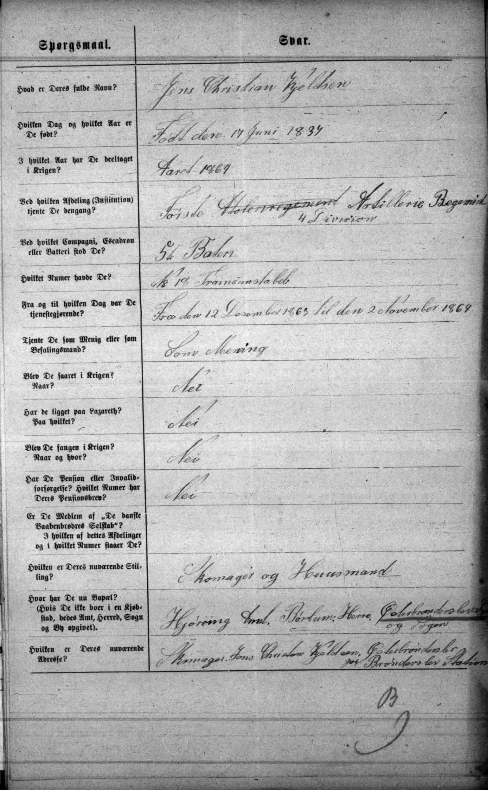 Spørgsmaal.
Svar.
Hvad er Deres fulde Navn?
Jens Christian Kjeldsen
Hvilken Dag og hvilket Aar er
De født?
Født den 17 Juni 1837
I hvilket Aar har De deeltaget
i Krigen?
Aaret 1864
Ved hvilken Afdeling (Institution)
tjente De dengang?
Første Artillerie Regement
4 Division
Ved hvilket Compagni, Escadron
eller Batteri stod De?
5te
Hvilket Numer havde De?
No 18
Fra og til hvilken Dag var De
tjenestegjørende?
Fra den 12 Desember 1863 til den 2 November 1864
Tjente De som Menig eller som
Befalingsmand?
Som Mening
Blev De saaret i Krigen?
Naar?
Nei
Har De ligget paa Lazareth?
Paa hvilket?
Nei
Blev De fangen i Krigen?
Naar og hvor?
Nei
Har De Pension eller Invalid-
forsørgelse? Hvilket Numer har
Deres Pensionsbrev?
Nei
Er De Medlem af „De danske
Vaabenbrødres Selskab"?
I hvilken af dettes Afdelinger
og i hvilket Numer staaer De?
Hvilken er Deres nuværende Stil-
ling?
Skomager og Huusmand
Hvor har De nu Bopæl?
(Hvis De ikke boer i en Kjøb-
stad, bedes Amt, Herred, Sogn
og By opgivet).
Hjørring Amt. Børlum Herre
og Sogn
Hvilken er Deres nuværende
Adresse?
Skomager Jens Christian Kjeldsen, Østerbrønderslev
pr Brønderslev Station
B